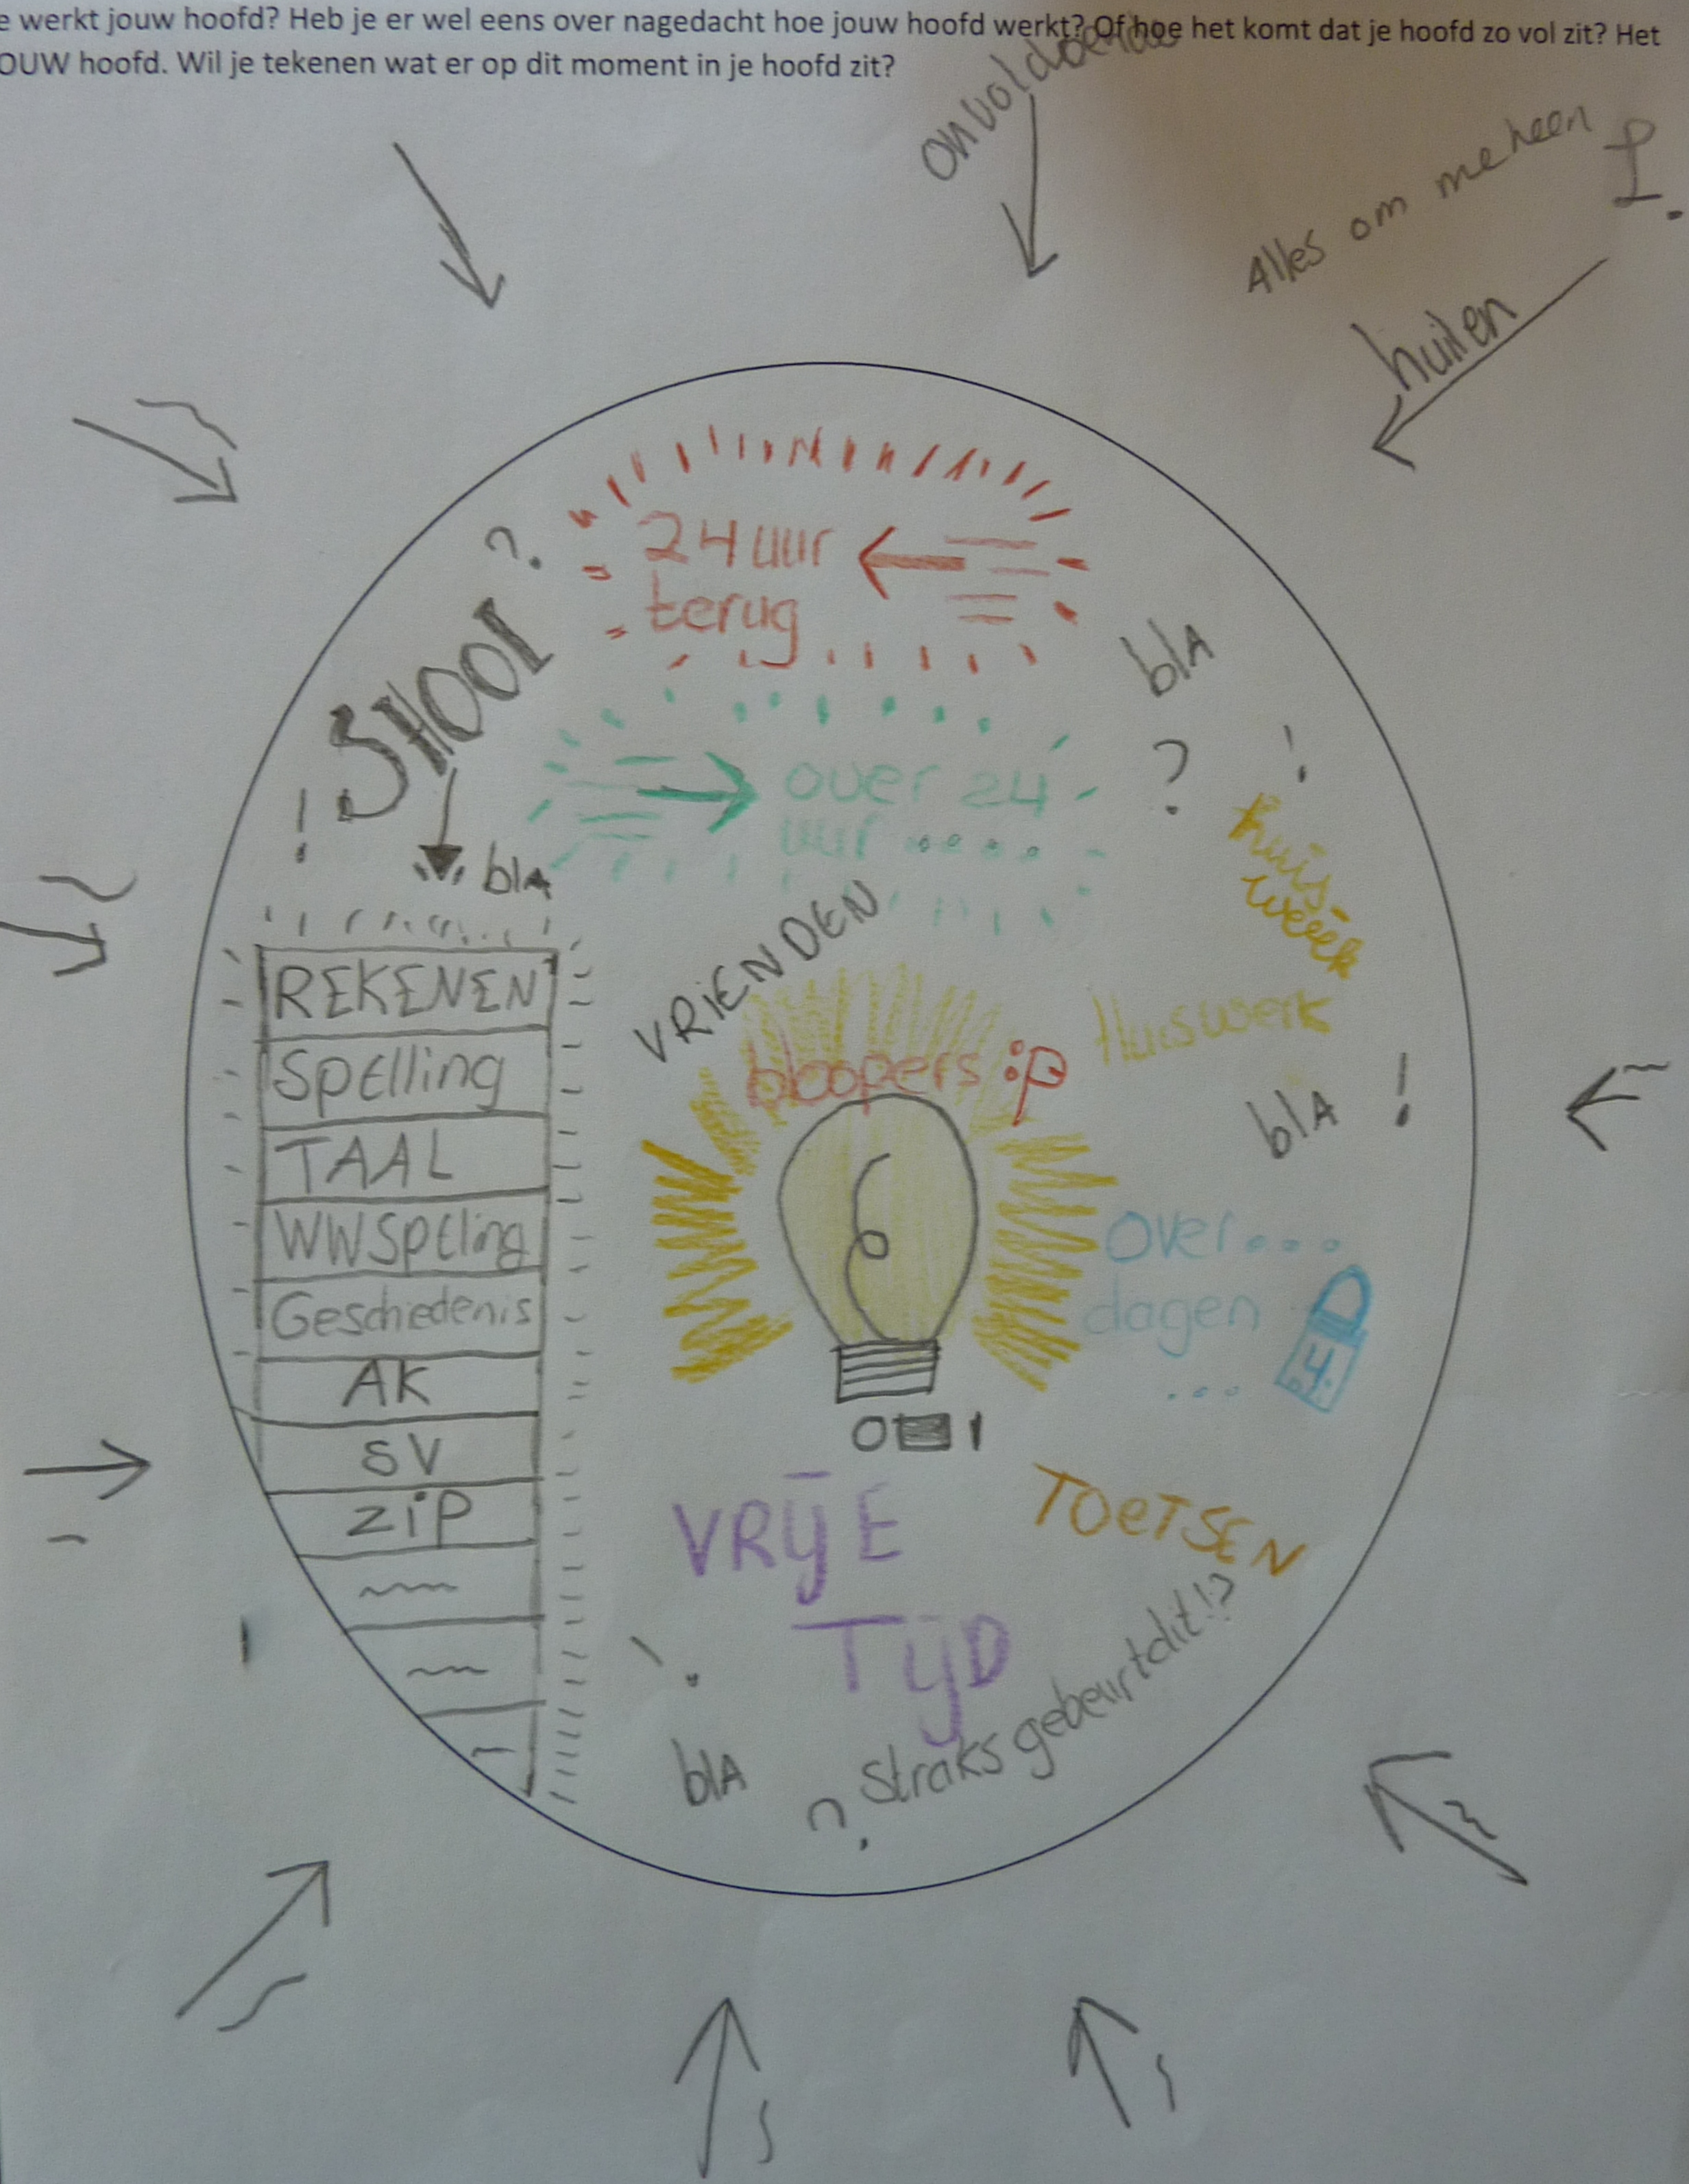 e werkt jouw hoofd? Heb je er wel eens over nagedacht hoe jouw hoofd werkt? Of hoe het komt dat je hoofd zo vol zit? Het
OUW hoofd. Wil je tekenen wat er op dit moment in je hoofd zit?
onvoldoende
Alles om me heen
huilen
24 uur
terug
?
SHOOl
!
bla
over 24
uur ....
bla
?
!
huis-
weeek
VRIENDEN
bloopers :P
Huiswerk
bla !
REKENEN
Spelling
TAAL
WWSpelling
Geschiedenis
AK
SV
ZiP
over...
dagen
...
4
O 1
VRijE
TijD
TOeTSEN
!
bla
? Straks gebeurt dit!?